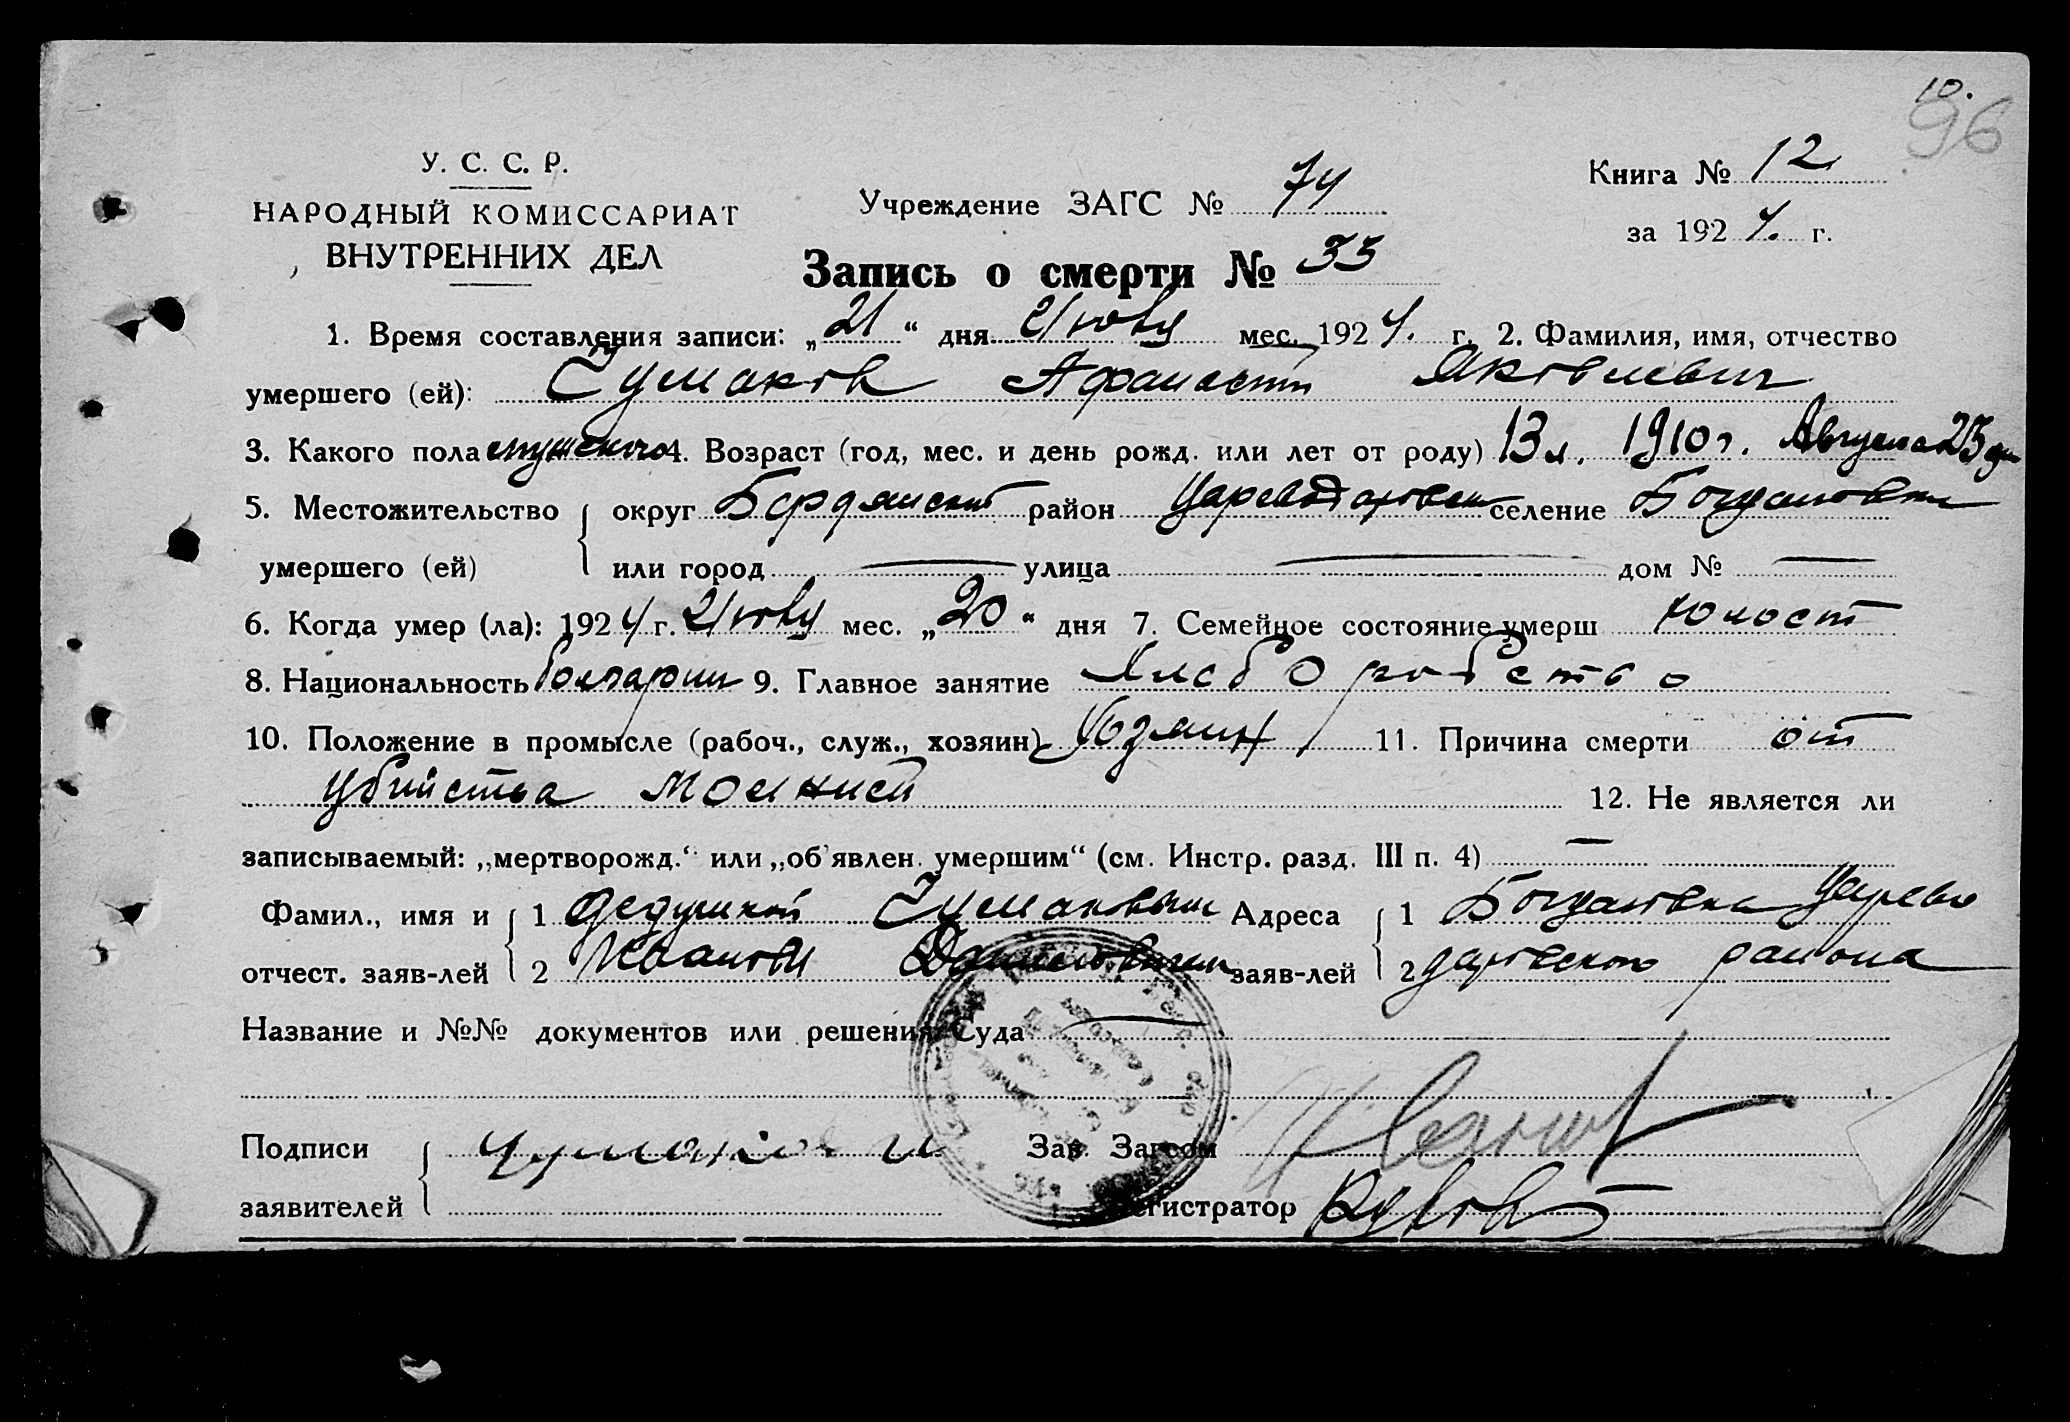 10.
96
У. С. С. Р.
НАРОДНЫЙ КОМИССАРИАТ
ВНУТРЕННИХ ДЕЛ
Учреждение ЗАГС № 74
Книга № 12
за 1924. г.
Запись о смерти № 33
1. Время составления записи: „21“ дня Июля мес. 1924. г. 2. Фамилия, имя, отчество
умершего (ей): Чумаков Афанасий Яковлевич
3. Какого пола мужского 4. Возраст (год, мес. и день рожд. или лет от роду) 13 л. 1910 г. Августа 25 дня
5. Местожительство округ Бердянский район Царевдаровск селение Богдановка
умершего (ей) или город — улица — дом № —
6. Когда умер (ла): 1924 г. Июля мес. „20“ дня 7. Семейное состояние умерш холост
8. Национальность болгарин 9. Главное занятие Хлеборобство
10. Положение в промысле (рабоч., служ., хозяин) Хозяин 11. Причина смерти от
убийства молнией 12. Не является ли
записываемый: „мертворожд.“ или „об'явлен. умершим“ (см. Инстр. разд. III п. 4) —
Фамил., имя и 1 Дедушкой Чумаковым Адреса 1 Богдановка Царево
отчест. заяв-лей 2 Иваном Даниловичем заяв-лей 2 даровского района
Название и №№ документов или решения Суда —
Подписи Чумаков И Зав. Загсом Иванов
заявителей Регистратор